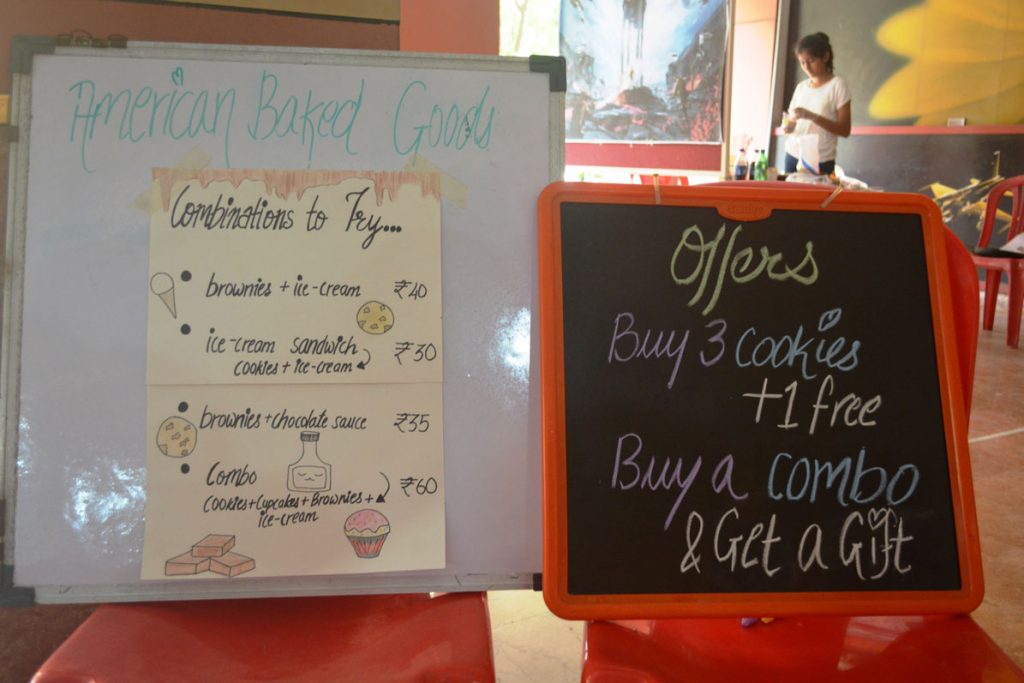 American Baked Goods
Combinations to Try...
brownies + ice-cream ₹40
ice-cream sandwich ₹30
cookies + ice-cream
brownies + chocolate sauce ₹35
Combo ₹60
Cookies + Cupcakes + Brownies +
ice-cream
Offers
Buy 3 cookies
+1 free
Buy a combo
& Get a Gift